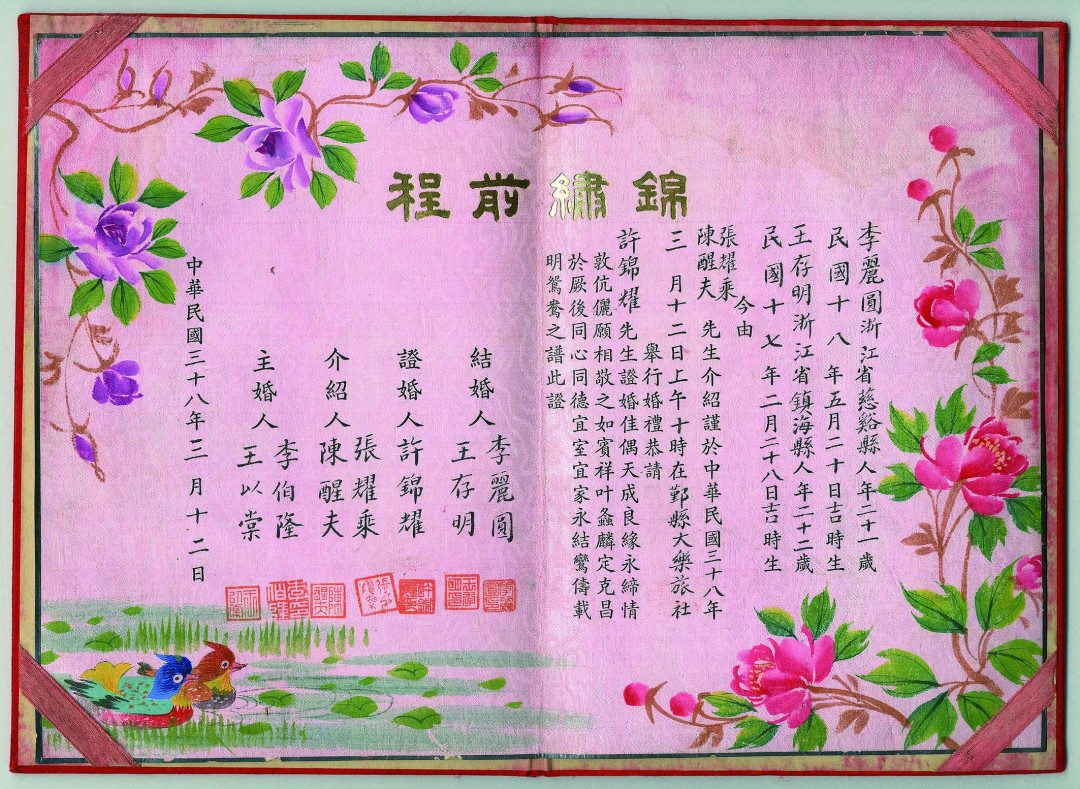 錦繡前程
李麗圓浙江省慈谿縣人年二十一歲
民國十八年五月二十日吉時生
王存明浙江省鎮海縣人年二十二歲
民國十七年二月二十八日吉時生
今由
張耀乘
陳醒夫
先生介紹謹於中華民國三十八年
三月十二日上午十時在鄞縣大樂旅社
舉行婚禮恭請
許錦耀先生證婚佳偶天成良緣永締情
敦伉儷願相敬之如賓祥叶螽麟定克昌
於厥後同心同德宜室宜家永結鸞儔載
明鴛鴦之譜此證
結婚人
李麗圓
王存明
證婚人許錦耀
介紹人
張耀乘
陳醒夫
主婚人
李伯隆
王以棠
中華民國三十八年三月十二日